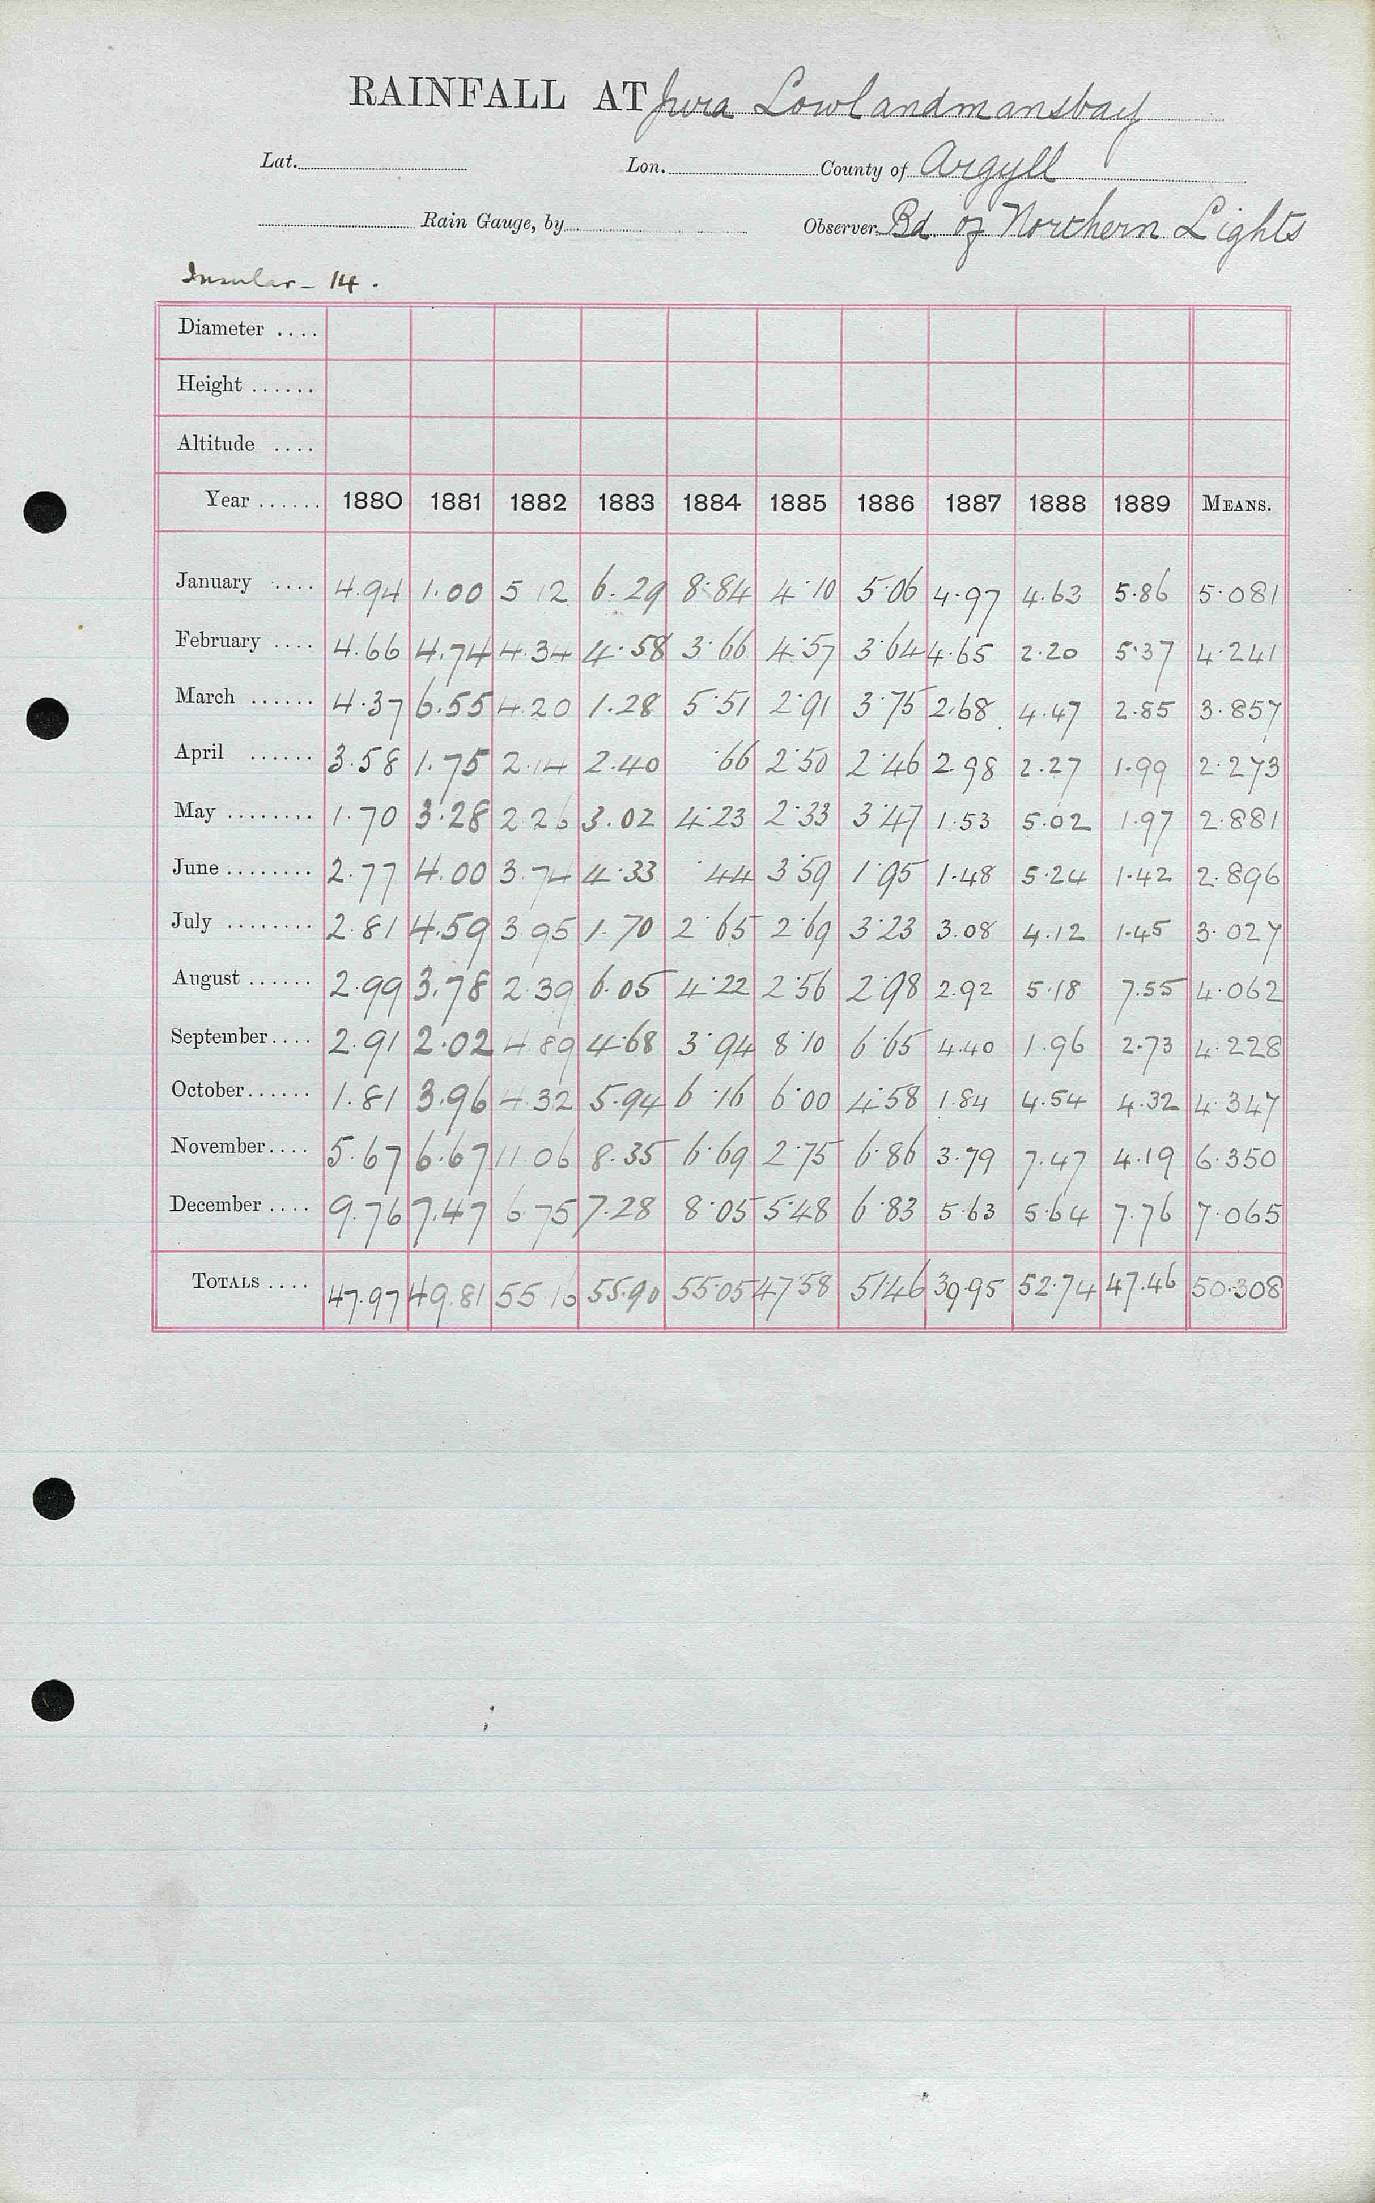 RAINFALL AT Jura Lowlandmansbay
Lat. Lon. County of Argyll
Rain Gauge, by Observer Bd of Northern Lights
Insular - 14.
Diameter ....
Height ......
Altitude ....
Year ...... 1880 1881 1882 1883 1884 1885 1886 1887 1888 1889 MEANS.
January .... 4.94 1.00 5 12 6.29 8.84 4.10 5.06 4.97 4.63 5.86 5.081
February .... 4.66 4.74 4.34 4.58 3.66 4.57 3.64 4.65 2.20 5.37 4.241
March ...... 4.37 6.55 4.20 1.28 5.51 2.91 3.75 2.68 4.47 2.85 3.857
April ...... 3.58 1.75 2.14 2.40 .66 2.50 2.46 2.98 2.27 1.99 2.273
May ........ 1.70 3.28 2.26 3.02 4.23 2.33 3.47 1.53 5.02 1.97 2.881
June ........ 2.77 4.00 3.74 4.33 .44 3.59 1.95 1.48 5.24 1.42 2.896
July ........ 2.81 4.59 3.95 1.70 2.65 2.69 3.23 3.08 4.12 1.45 3.027
August ...... 2.99 3.78 2.39 6.05 4.22 2.56 2.98 2.92 5.18 7.55 4.062
September .... 2.91 2.02 4.89 4.68 3.94 8.10 6.65 4.40 1.96 2.73 4.228
October ...... 1.81 3.96 4.32 5.94 6.16 6.00 4.58 1.84 4.54 4.32 4.347
November .... 5.67 6.67 11.06 8.35 6.69 2.75 6.86 3.79 7.47 4.19 6.350
December .... 9.76 7.47 6.75 7.28 8.05 5.48 6.83 5.63 5.64 7.76 7.065
TOTALS .... 47.97 49.81 55.16 55.90 55.05 47.58 51.46 39.95 52.74 47.46 50.308